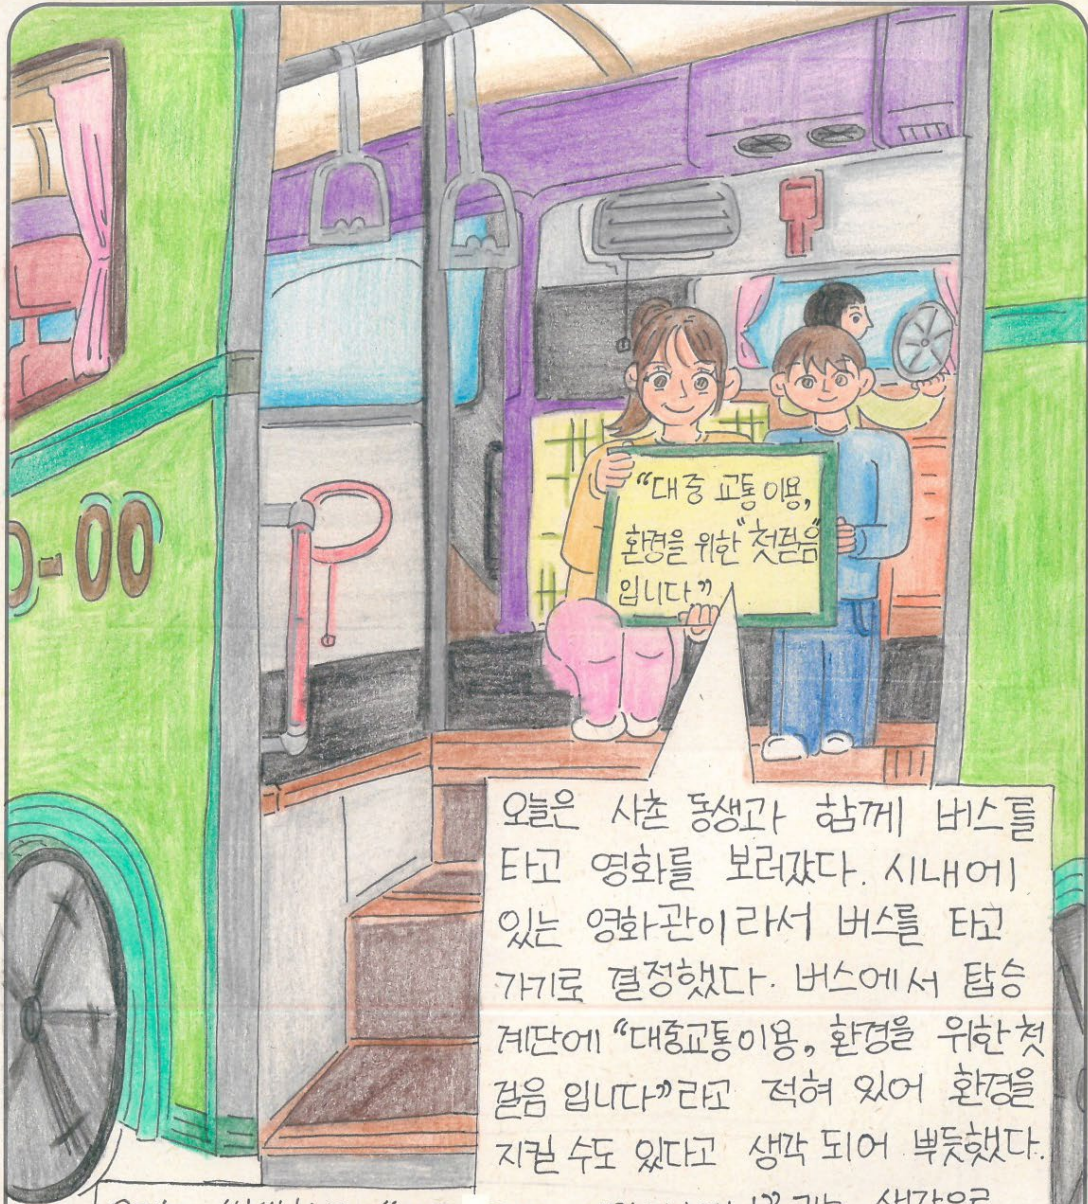 0-00
"대중 교통 이용,
환경을 위한 "첫걸음"
입니다"
오늘은 사촌 동생과 함께 버스를
타고 영화를 보러갔다. 시내에
있는 영화관이라서 버스를 타고
가기로 결정했다. 버스에서 탑승
계단에 "대중교통이용, 환경을 위한 첫
걸음 입니다"라고 적혀 있어 환경을
지킬 수도 있다고 생각 되어 뿌듯했다.
생각으로